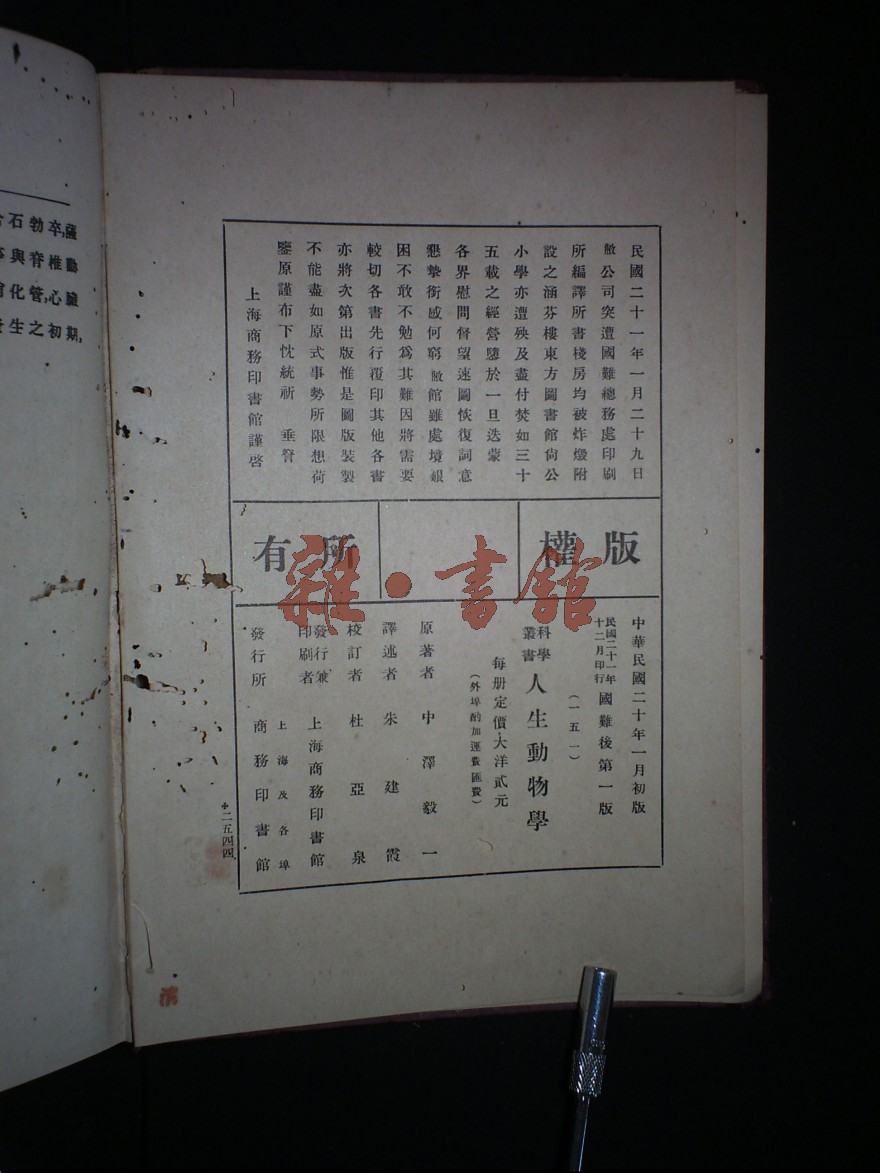 民國二十一年一月二十九日
敝公司突遭國難總務處印刷
所編譯所書棧房均被炸燬附
設之涵芬樓東方圖書館尙公
小學亦遭殃及盡付焚如三十
五載之經營墮於一旦迭蒙
各界慰問督望速圖恢復詞意
懇摯銜感何窮敝館雖處境艱
困不敢不勉爲其難因將需要
較切各書先行覆印其他各書
亦將次第出版惟是圖版裝製
不能盡如原式事勢所限想荷
鑒原謹布下忱統祈 垂詧
上海商務印書館謹啓
版權所有
雜·書館
中華民國二十年一月初版
民國二十一年十二月印行 國難後第一版
(一五一)
科學叢書 人生動物學
每册定價大洋貳元
(外埠酌加運費匯費)
原著者 中澤毅一
譯述者 朱建霞
校訂者 杜亞泉
發行兼印刷者 上海商務印書館
發行所 上海及各埠 商務印書館
二五四四
薩
卒,勃石
動
椎脊與
臟
心,管化
期,
初之生